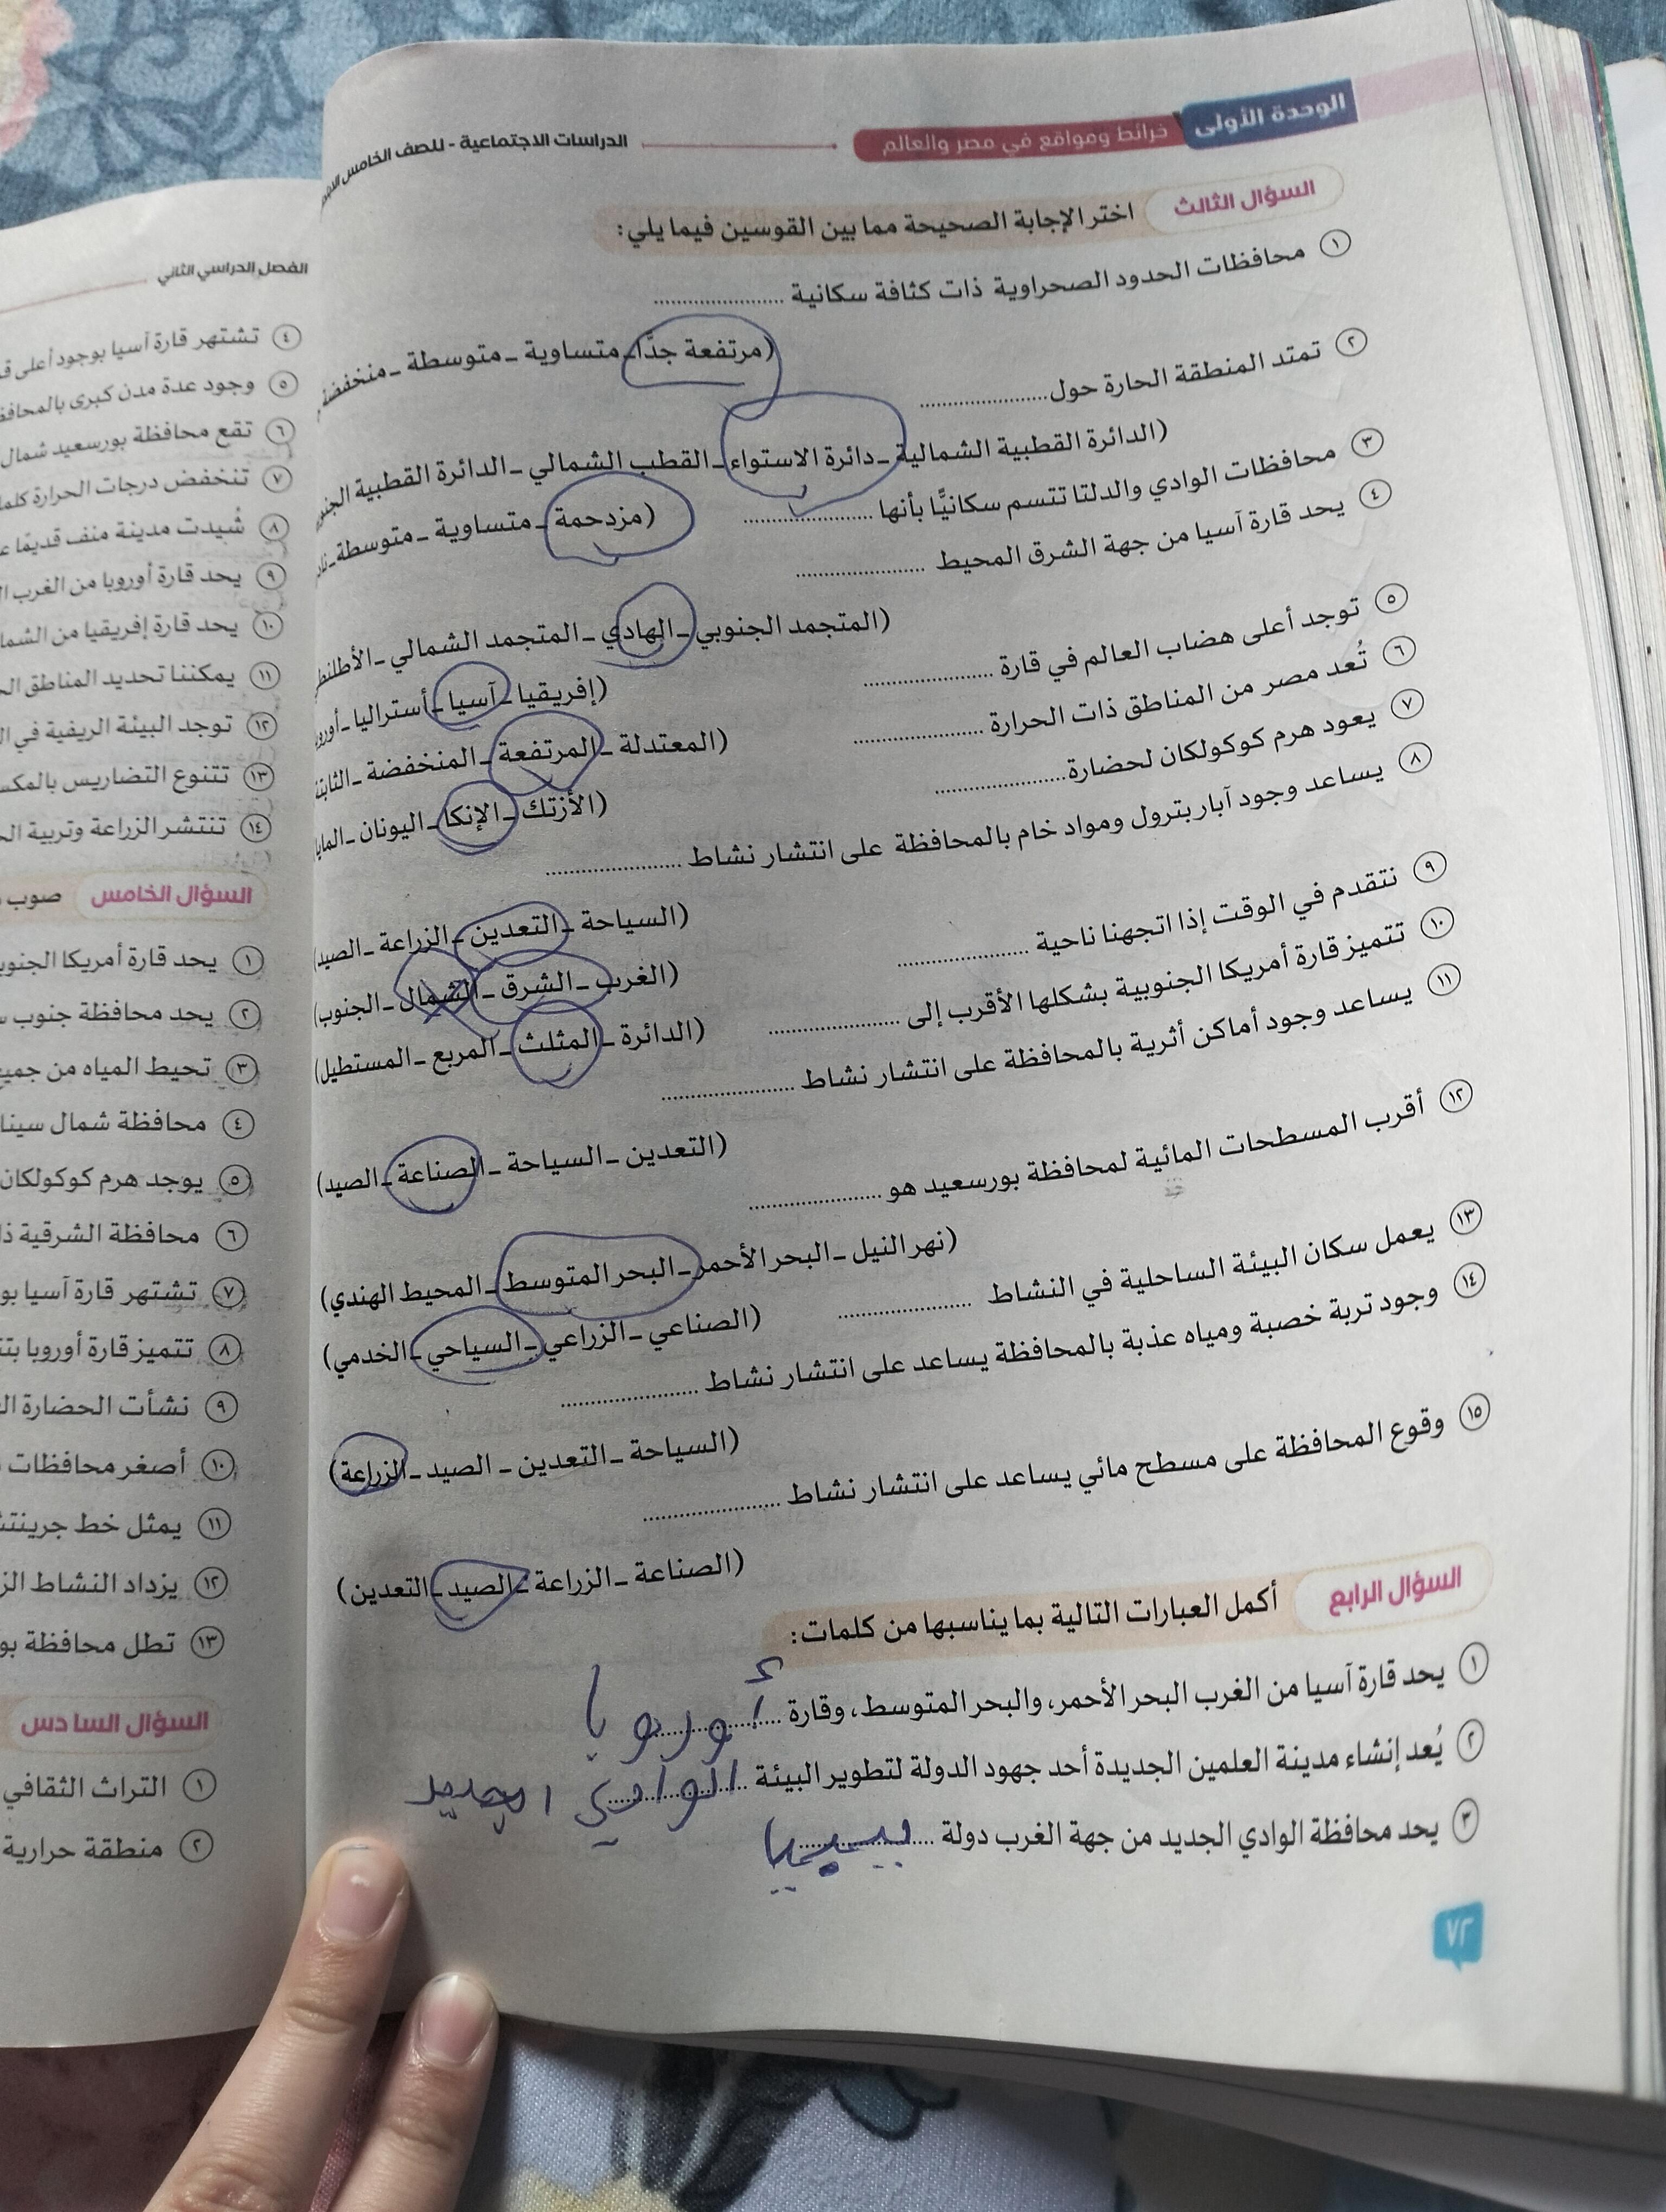 الوحدة الأولى خرائط ومواقع في مصر والعالم الدراسات الاجتماعية - للصف الخامس
السؤال الثالث اختر الإجابة الصحيحة مما بين القوسين فيما يلي:
١ محافظات الحدود الصحراوية ذات كثافة سكانية ....................
(مرتفعة جدًّا - متساوية - متوسطة - منخفضة
٢ تمتد المنطقة الحارة حول ....................
(الدائرة القطبية الشمالية - دائرة الاستواء - القطب الشمالي - الدائرة القطبية
٣ محافظات الوادي والدلتا تتسم سكانيًّا بأنها .................... (مزدحمة - متساوية - متوسطة -
٤ يحد قارة آسيا من جهة الشرق المحيط ....................
(المتجمد الجنوبي - الهادي - المتجمد الشمالي -
٥ توجد أعلى هضاب العالم في قارة .................... (إفريقيا - آسيا - أستراليا -
٦ تُعد مصر من المناطق ذات الحرارة .................... (المعتدلة - المرتفعة - المنخفضة -
٧ يعود هرم كوكولكان لحضارة .................... (الأزتك - الإنكا - اليونان -
٨ يساعد وجود آبار بترول ومواد خام بالمحافظة على انتشار نشاط ....................
(السياحة - التعدين - الزراعة - الصيد)
٩ نتقدم في الوقت إذا اتجهنا ناحية .................... (الغرب - الشرق - الشمال - الجنوب)
١٠ تتميز قارة أمريكا الجنوبية بشكلها الأقرب إلى .................... (الدائرة - المثلث - المربع - المستطيل)
١١ يساعد وجود أماكن أثرية بالمحافظة على انتشار نشاط ....................
(التعدين - السياحة - الصناعة - الصيد)
١٢ أقرب المسطحات المائية لمحافظة بورسعيد هو ....................
(نهر النيل - البحر الأحمر - البحر المتوسط - المحيط الهندي)
١٣ يعمل سكان البيئة الساحلية في النشاط .................... (الصناعي - الزراعي - السياحي - الخدمي)
١٤ وجود تربة خصبة ومياه عذبة بالمحافظة يساعد على انتشار نشاط ....................
(السياحة - التعدين - الصيد - الزراعة)
١٥ وقوع المحافظة على مسطح مائي يساعد على انتشار نشاط ....................
(الصناعة - الزراعة - الصيد - التعدين)
السؤال الرابع أكمل العبارات التالية بما يناسبها من كلمات:
١ يحد قارة آسيا من الغرب البحر الأحمر، والبحر المتوسط، وقارة أوروبا
٢ يُعد إنشاء مدينة العلمين الجديدة أحد جهود الدولة لتطوير البيئة الوادي الجديد
٣ يحد محافظة الوادي الجديد من جهة الغرب دولة ليبيا
٧٢
الفصل الدراسي الثاني
٤ تشتهر قارة آسيا بوجود أعلى
٥ وجود عدة مدن كبرى
٦ تقع محافظة بورسعيد شمال
٧ تنخفض درجات الحرارة كلما
٨ شُيدت مدينة منف قديمًا
٩ يحد قارة أوروبا من الغرب
١٠ يحد قارة إفريقيا من
١١ يمكننا تحديد المناطق
١٢ توجد البيئة الريفية في
١٣ تتنوع التضاريس
١٤ تنتشر الزراعة وتربية
السؤال الخامس صوب
١ يحد قارة أمريكا
٢ يحد محافظة جنوب
٣ تحيط المياه من
٤ محافظة شمال
٥ يوجد هرم كوكولكان
٦ محافظة الشرقية
٧ تشتهر قارة آسيا
٨ تتميز قارة أوروبا
٩ نشأت الحضارة
١٠ أصغر محافظات
١١ يمثل خط
١٢ يزداد النشاط
١٣ تطل محافظة
السؤال السادس
١ التراث الثقافي
٢ منطقة حرارية